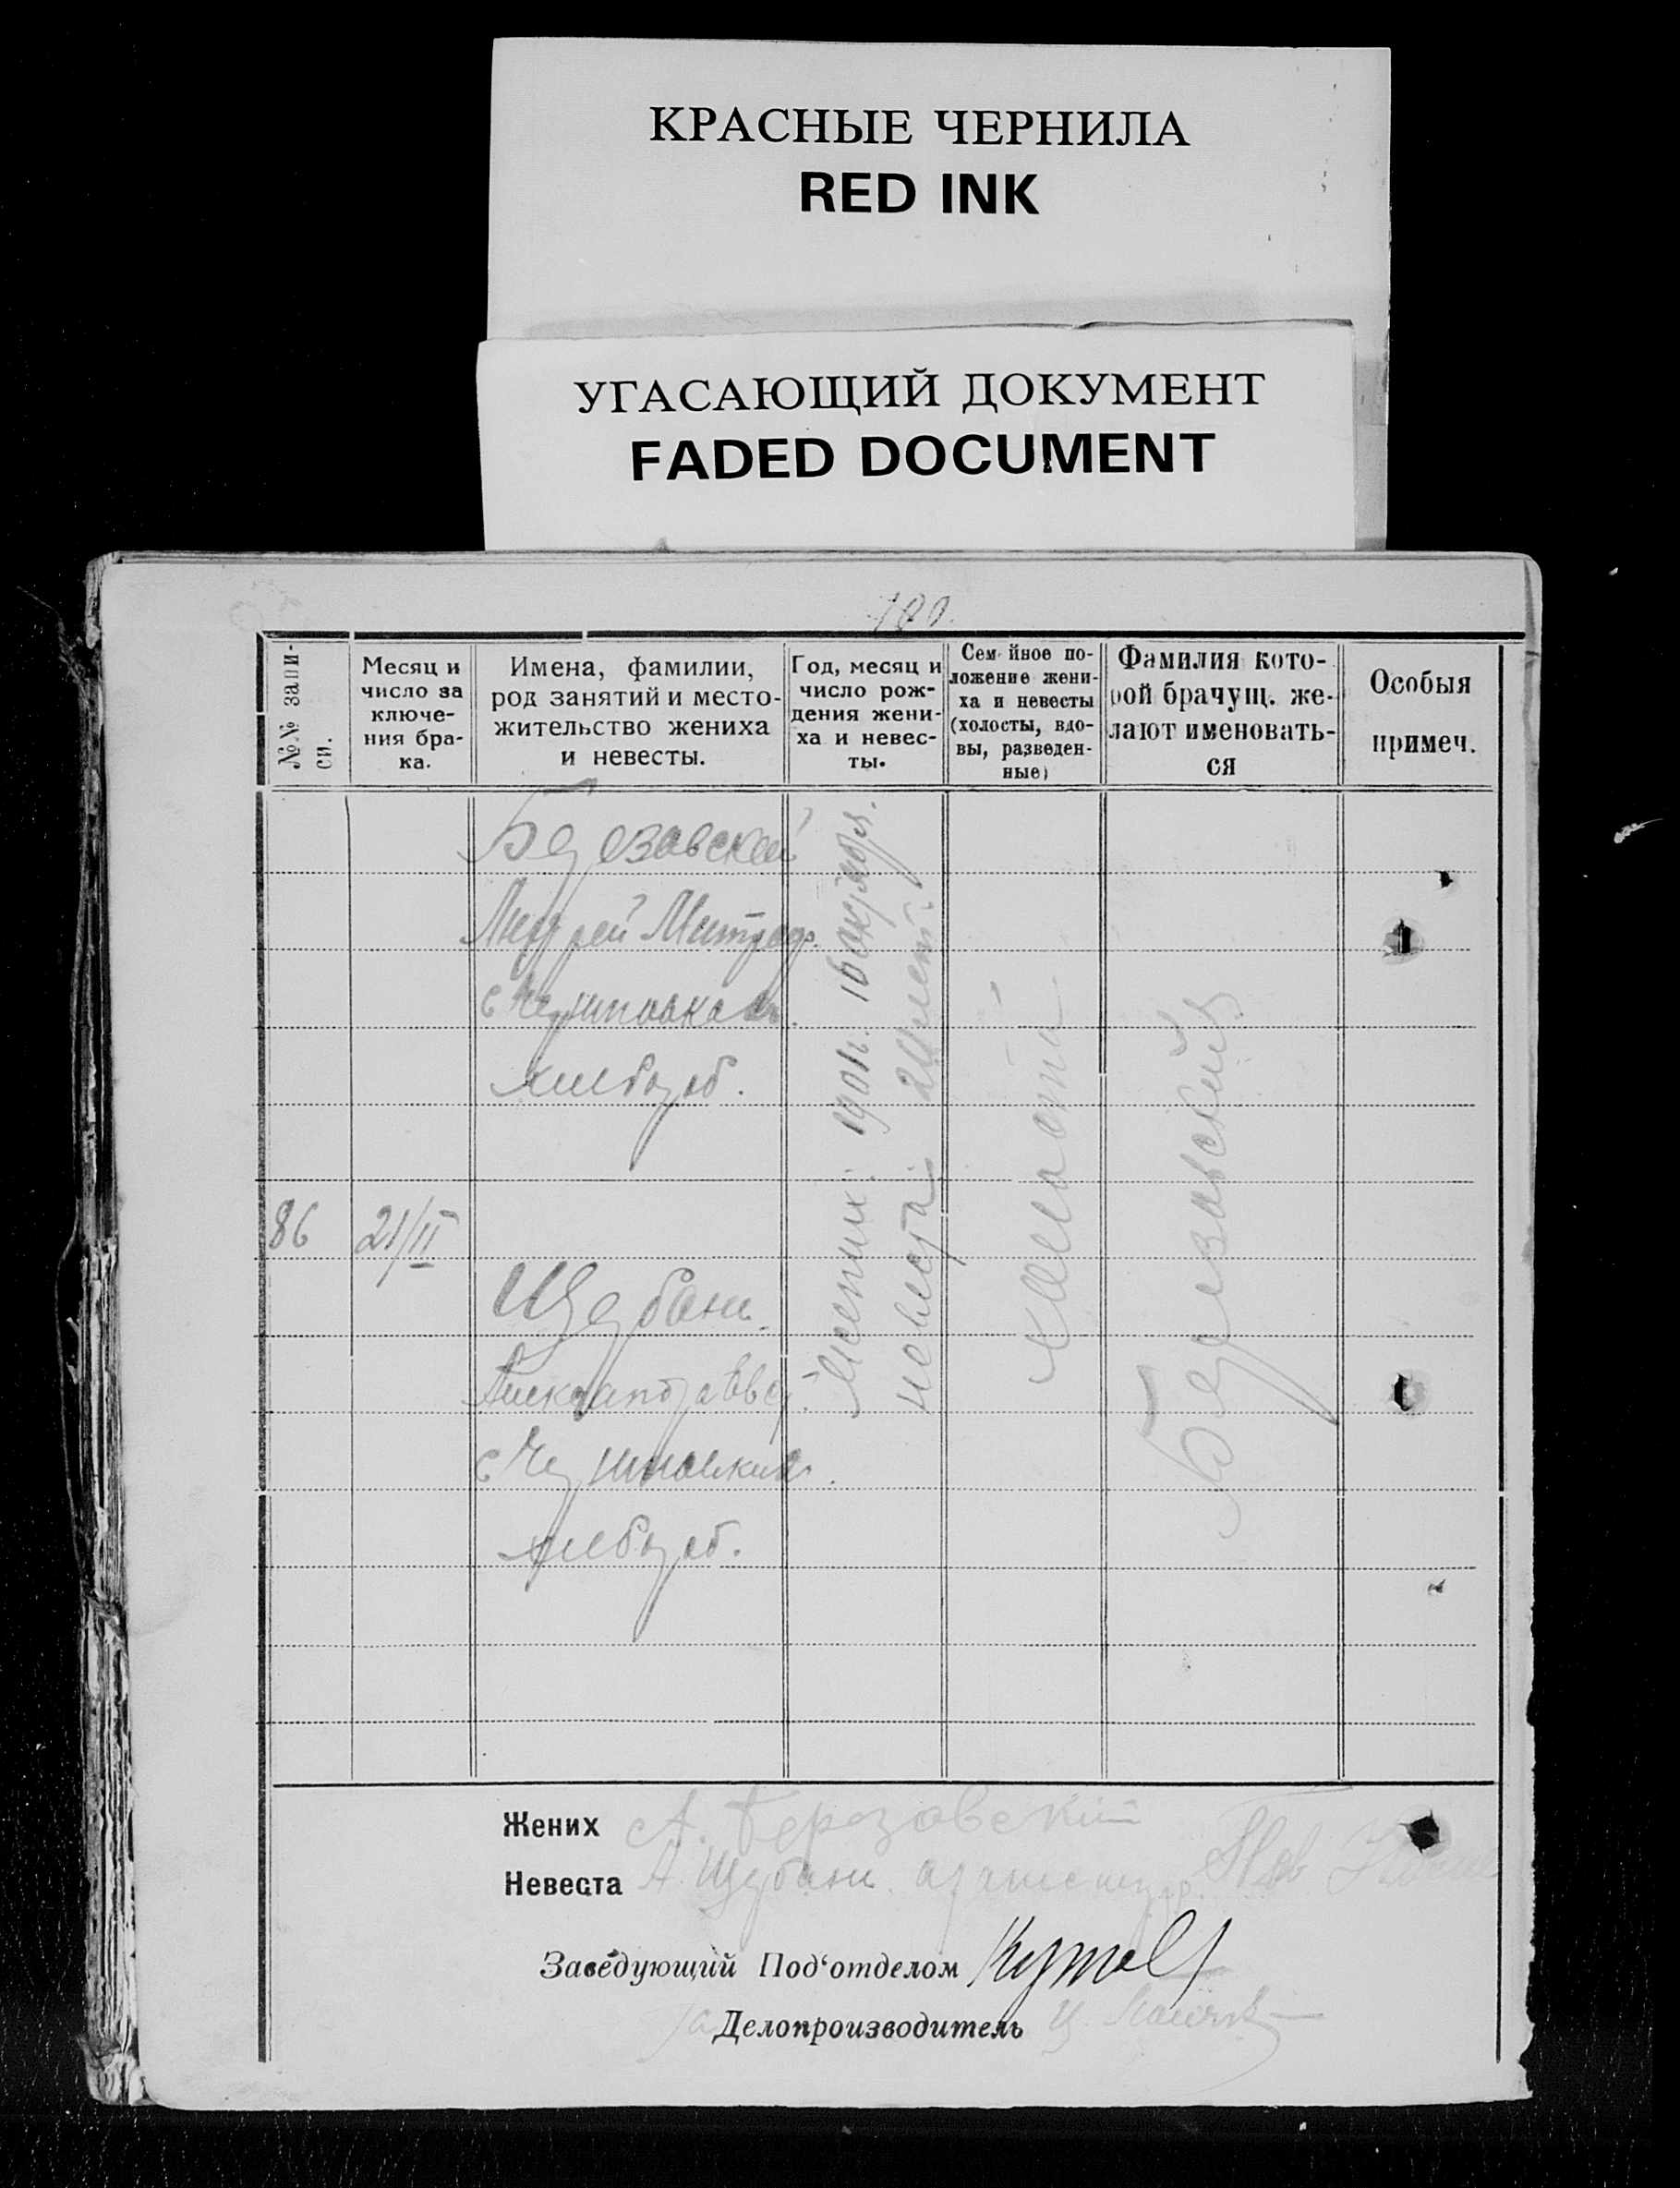 КРАСНЫЕ ЧЕРНИЛА
RED INK
УГАСАЮЩИЙ ДОКУМЕНТ
FADED DOCUMENT
180.
№№ запи-
си.
Месяц и
число за
ключе-
ния бра-
ка.
Имена, фамилии,
род занятий и место-
жительство жениха
и невесты.
Год, месяц и
число рож-
дения жени-
ха и невес-
ты.
Семейное по-
ложение жени-
ха и невесты
(холосты, вдо-
вы, разведен-
ные)
Фамилия кото-
рой брачущ. же-
лают именовать-
ся
Особыя
примеч.
Березавский
Андрей Митроф.
хлебороб.
86
21/II
Щербань
Александра
хлебороб.
Жених 1901 г. 16 октября.
невеста
холосты
Березавский
Жених А. Березовский
Невеста А. Щербань
Заведующий Под‘отделом
Делопроизводитель